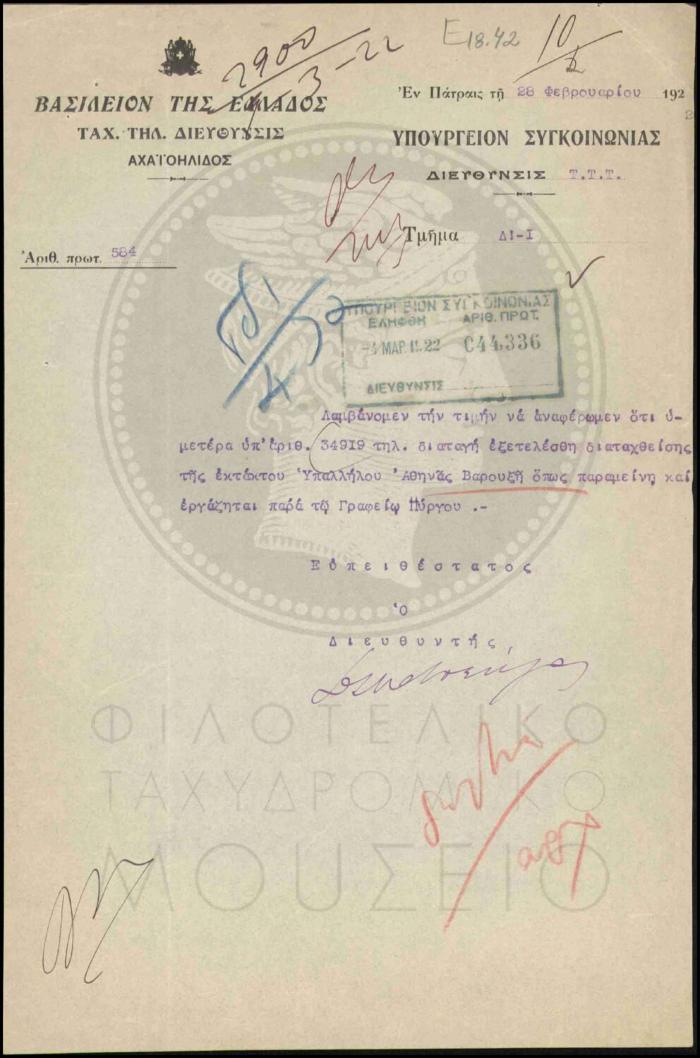 2900
4-3-22
Ε18.42
10/
ΒΑΣΙΛΕΙΟΝ ΤΗΣ ΕΛΛΑΔΟΣ
ΤΑΧ. ΤΗΛ. ΔΙΕΥΘΥΝΣΙΣ
ΑΧΑΪΟΗΛΙΔΟΣ
Ἐν Πάτραις τῇ 28 Φεβρουαρίου 192 2
ΥΠΟΥΡΓΕΙΟΝ ΣΥΓΚΟΙΝΩΝΙΑΣ
ΔΙΕΥΘΥΝΣΙΣ Τ.Τ.Τ.
Τμῆμα ΔΙ-Ι
Ἀριθ. πρωτ. 584
ΥΠΟΥΡΓΕΙΟΝ ΣΥΓΚΟΙΝΩΝΙΑΣ
ΕΛΗΦΘΗ ΑΡΙΘ. ΠΡΩΤ.
-4 ΜΑΡ 1922 044,336
ΔΙΕΥΘΥΝΣΙΣ
Λαμβάνομεν τήν τιμήν νά ἀναφέρωμεν ὅτι ὑ-
μετέρα ὑπ'ἀριθ. 34919 τηλ. διαταγή ἐξετελέσθη διαταχθείσης
τῆς ἐκτάκτου Ὑπαλλήλου Ἀθηνᾶς Βαρουξῆ ὅπως παραμείνῃ καί
ἐργάζηται παρά τῷ Γραφείῳ Πύργου .-
Εὐπειθέστατος
Ὁ
Διευθυντής
ΦΙΛΟΤΕΛΙΚΟ
ΤΑΧΥΔΡΟΜΙΚΟ
ΜΟΥΣΕΙΟ